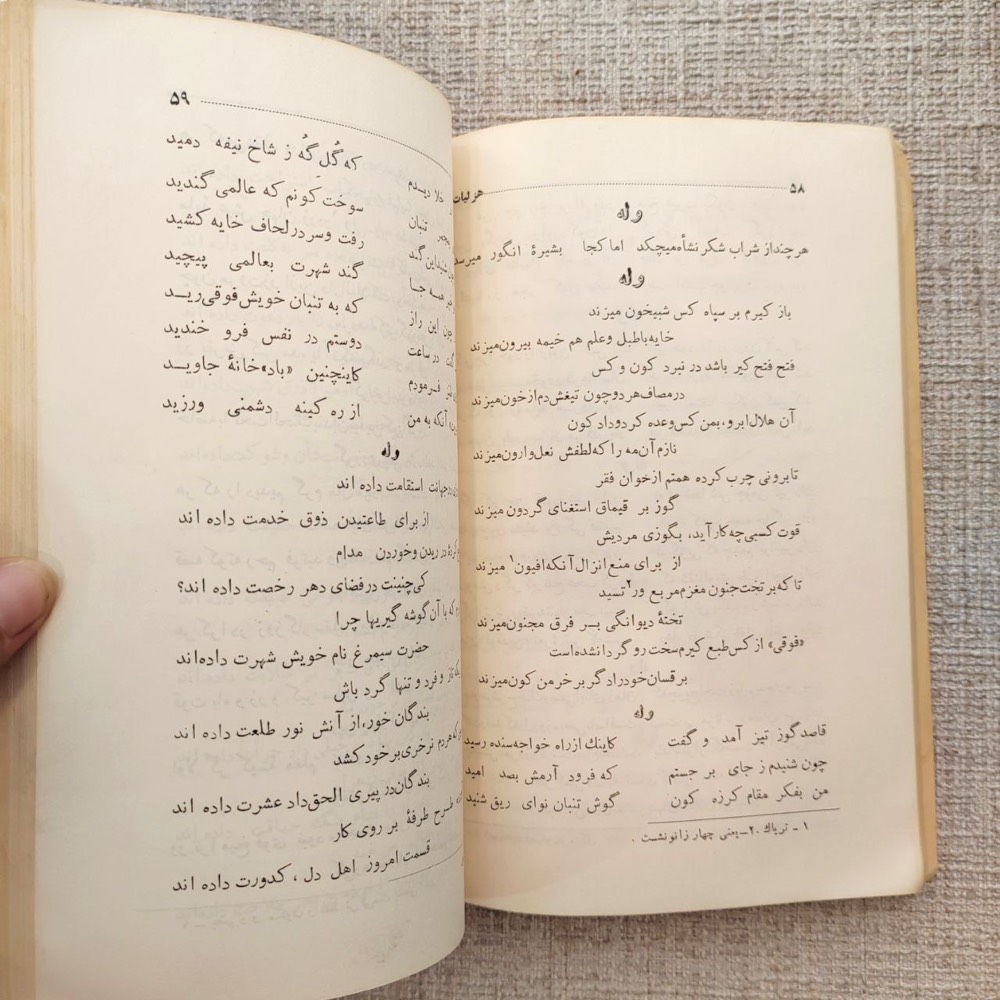 ۵۸ هزلیات
وله
هر چند از شراب شکر نشأه میچکد اما کجا بشیرهٔ انگور میرسد
وله
باز کیرم بر سپاه کس شبیخون میزند
خایه باطبل و علم هم خیمه بیرون میزند
فتح فتح کیر باشد در نبرد کون و کس
در مصاف هر دو چون تیغش دم از خون میزند
آن هلال ابرو، بمن کس وعده کرد و داد کون
نازم آن مه را که لطفش نعل وارون میزند
تا برونی چرب کرده همتم از خوان فقر
گوز بر قیماق استغنای گردون میزند
قوت کسبی چه کار آید، بگوزی مردیش
از برای منع انزال آنکه افیون۱ میزند
تا که بر تخت جنون مغزم مربع ور۲ تسید
تختهٔ دیوانگی بر فرق مجنون میزند
«فوقی» از کس طبع کیرم سخت رو گردانشده است
بر قسان خود را دگر بر خر من کون میزند
وله
قاصد گوز تیز آمد و گفت کاینک از راه خواجه سنده رسید
چون شنیدم ز جای بر جستم که فرود آرمش بصد امید
من بفکر مقام کرزه کون گوش تنبان نوای ریق شنید
۱ - تریاك ۲۰ - یعنی چهار زانو نشست .
۵۹
خلا دیدم که گُلِ گُه ز شاخ نیفه دمید
تنبان سوخت کونم که عالمی گندید
این گند رفت و سر در لحاف خایه کشید
همه جا گند شهرت بعالمی پیچید
چون این راز که به تنبان خویش فوقی رید
در ساعت دوستم در نفس فرو خندید
فرمودم کاینچنین «باد» خانهٔ جاوید
آنکه به من از ره کینه دشمنی ورزید
وله
جهانت استقامت داده اند
از برای طاعتیدن ذوق خدمت داده اند
در ریدن و خوردن مدام
کی چنینت در فضای دهر رخصت داده اند؟
که با آن گوشه گیریها چرا
حضرت سیمرغ نام خویش شهرت داده اند
و فرد و تنها گرد باش
بندگان خور، از آتش نور طلعت داده اند
که هر دم نرخری بر خود کشد
بندگان در پیری الحق داد عشرت داده اند
طرح طرفهٔ بر روی کار
قسمت امروز اهل دل، کدورت داده اند